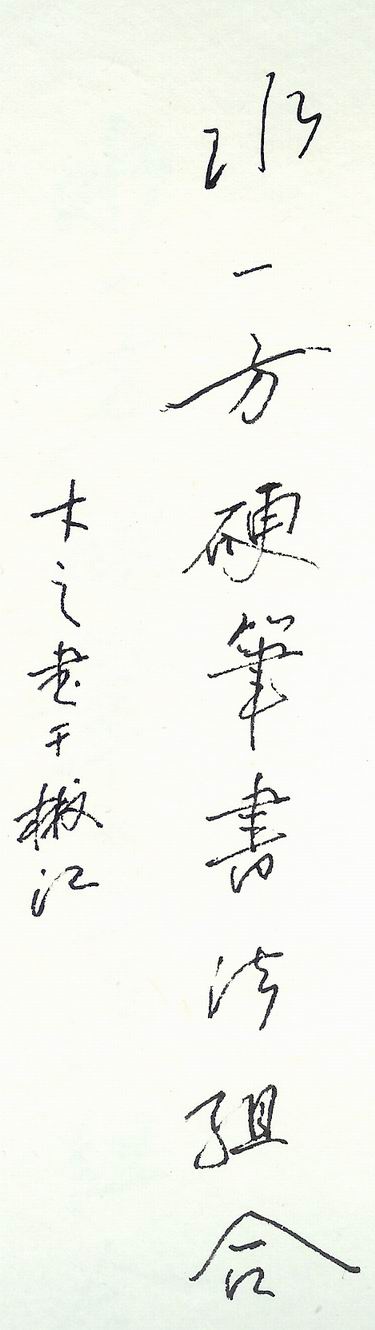 水一方硬筆書法組合
木之书于椒江